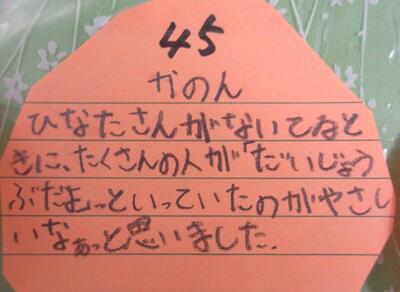 45
かのん
ひなたさんがないてると
きに、たくさんの人が「だいじょう
ぶだよっといっていたのがやさし
いなぁっと思いました.